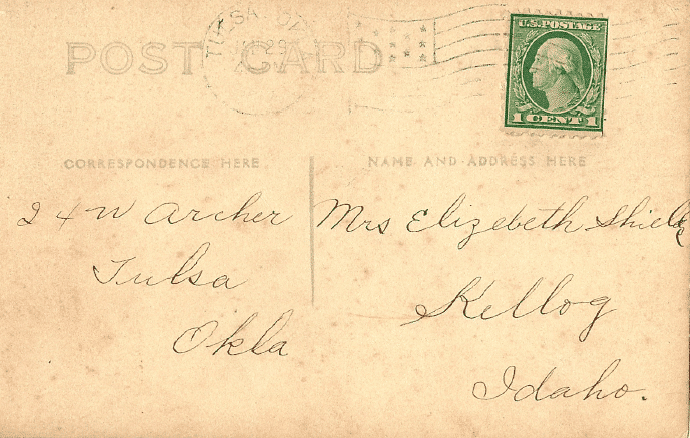 TULSA
29
POST CARD
U.S. POSTAGE
1 CENT 1
CORRESPONDENCE HERE
24 W Archer
Tulsa
Okla
NAME AND ADDRESS HERE
Mrs Elizebeth Shields
Kellog
Idaho.